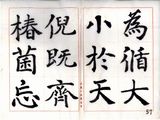 為循大
小於天
倪既齊
椿菌忘
57